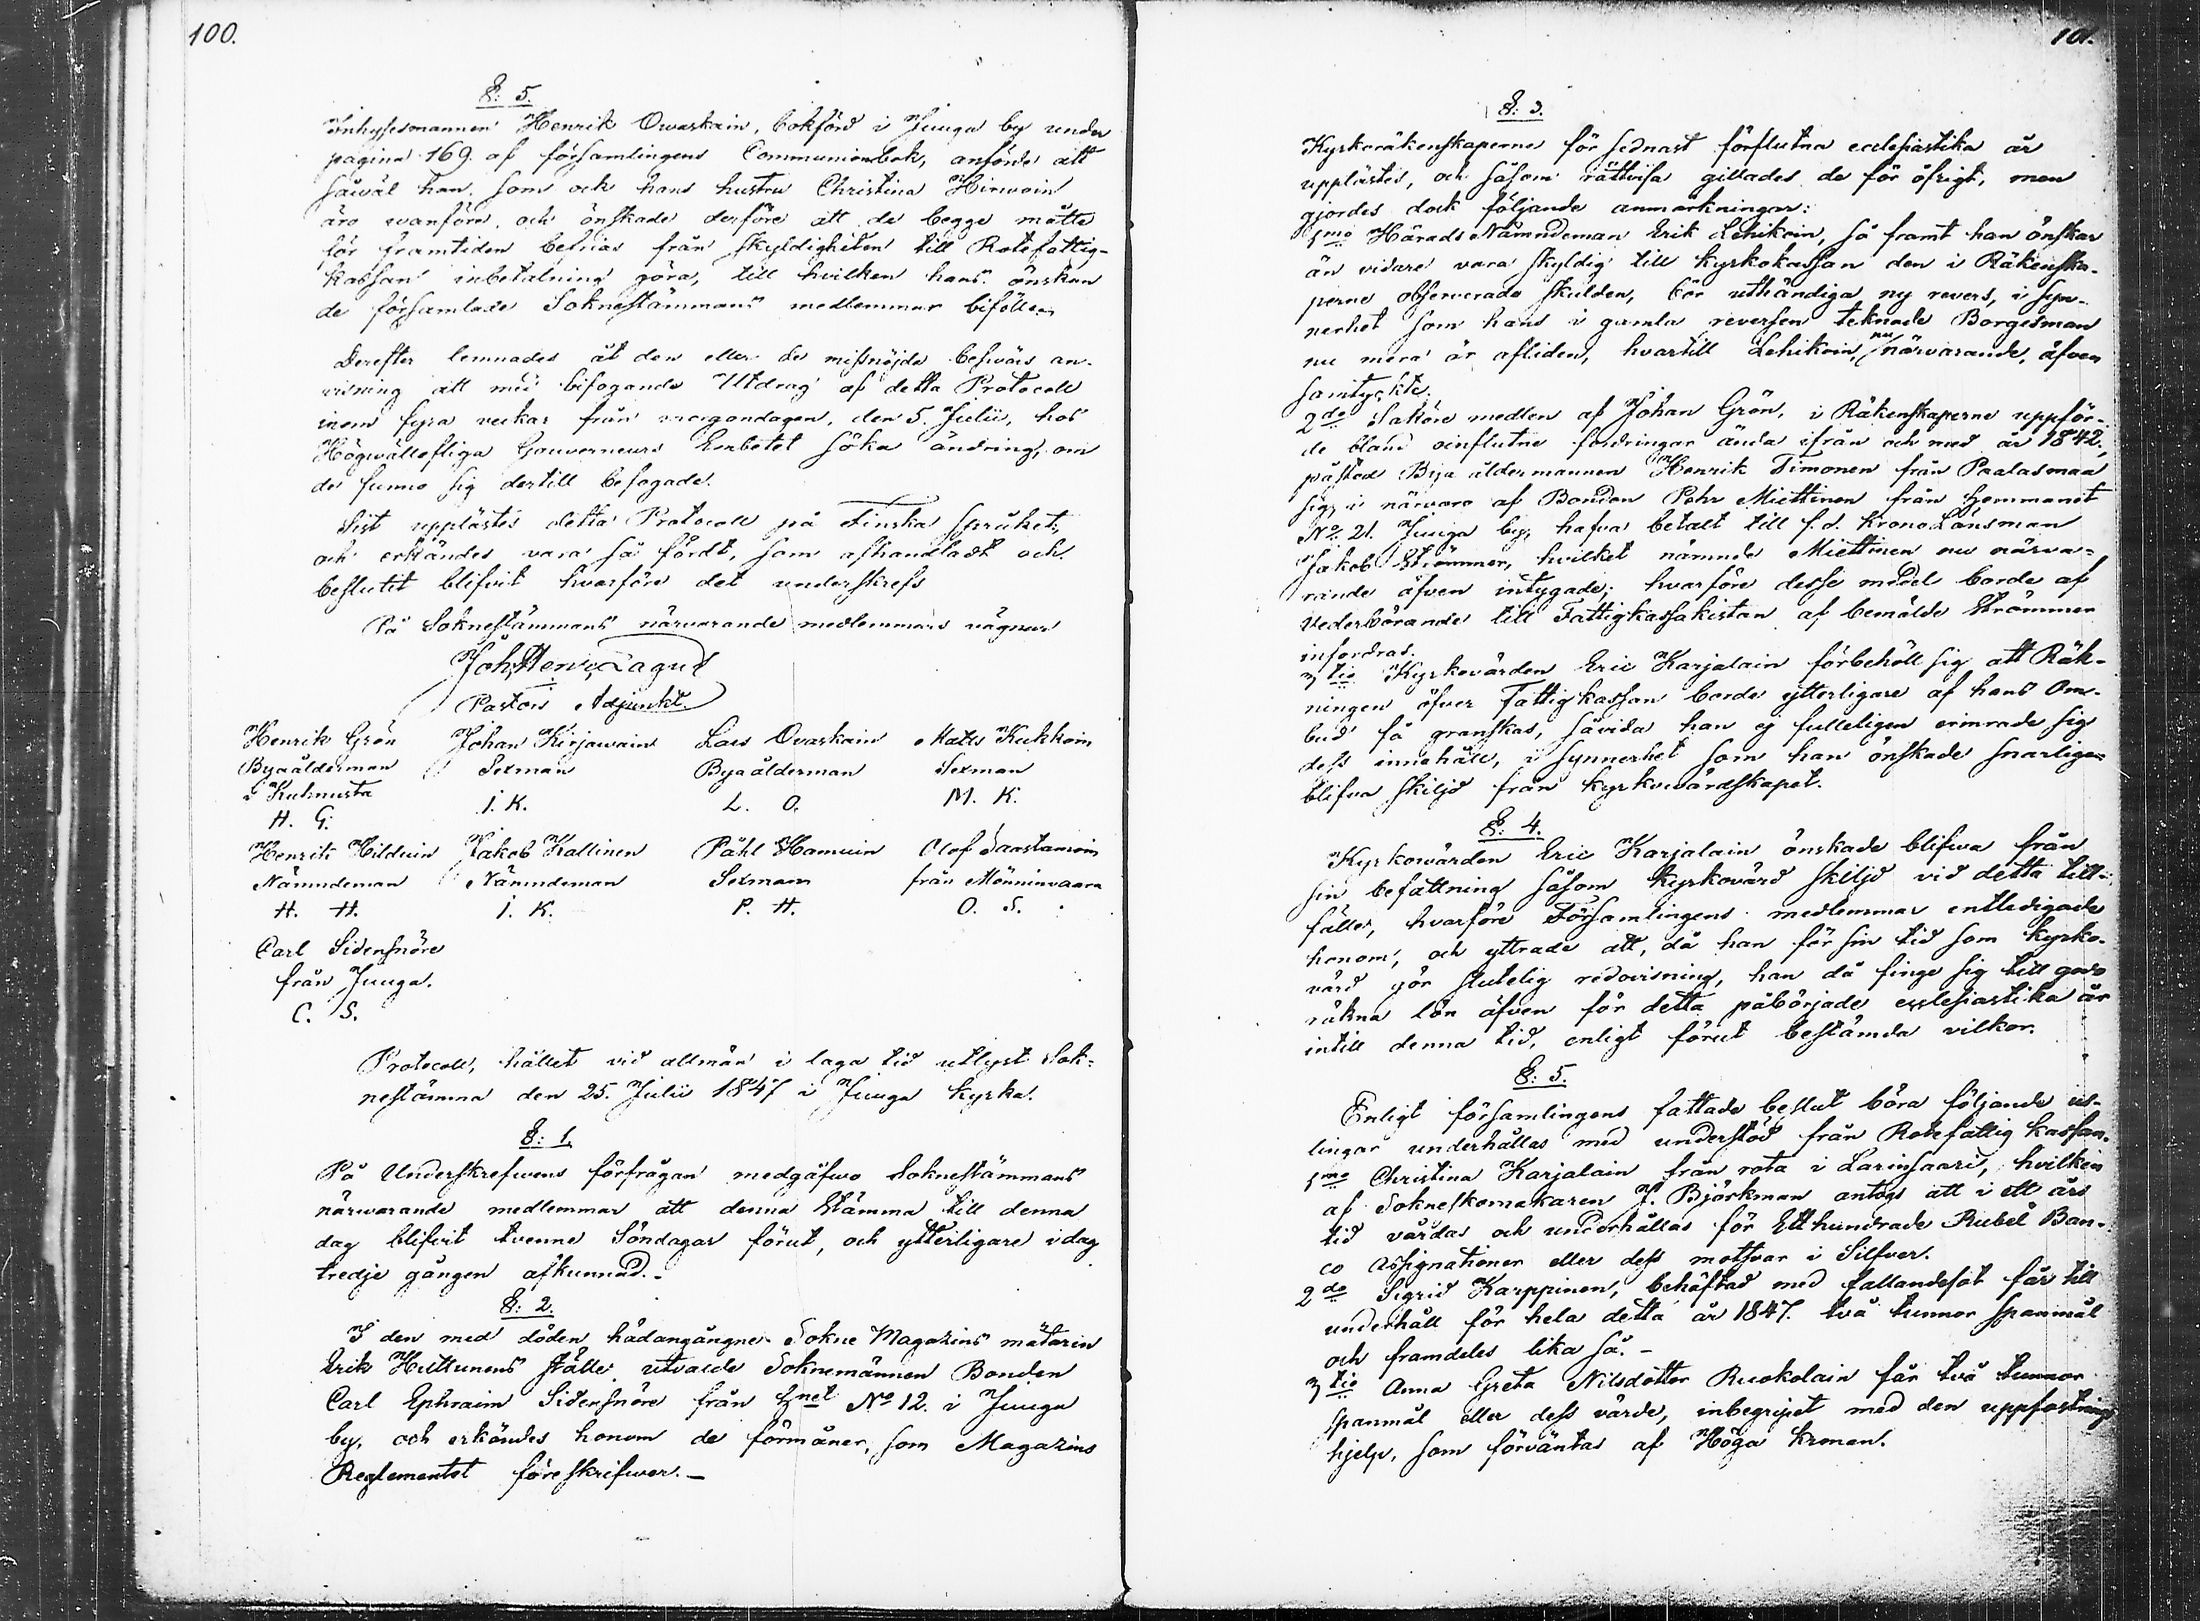 100.
§: 5.
Inhysesmannen Henrik Ovaskain, bokförd i Juuga by under
pagina 169. af församlingens Communionbok, anförde att
såwäl han, som och hans hustru Christina Hirwoin
äro wanföre, och önskade derföre att de begge måtte
för framtiden befrias från skyldigheten till Rotefattig-
kassan inbetalning göra, till hvilken hans önskan
de församlade Soknestämmans medlemmar biföllo.
Derefter lemnades åt den eller de missnöjda besvärs an-
visning att med bifogande Utdrag af detta Protocoll
inom fyra veckor från morgondagen, den 5. Julii, hos
Högwällofliga Gouverneurs Embetet söka ändring, om
de funno sig dertill befogade.
Sist upplästes detta Protocoll på Finska språket,
och erkändes vara så fördt, som afhandladt och
beslutit blifvit hvarföre det underskrefs
På Soknestämmans närvarande medlemmars vägnar
Joh. Henr. Lagus
Pastors Adjunkt.
Henrik Grön Johan Kirjawain Lars Ovaskain Mats Kukkoin
Byaålderman Sexman Byaålderman Sexman
i Kuhnusta J. K. L. O. M. K.
H. G.
Henrik Hilduin Jakob Kallinen Påhl Hamuin Olof Saastamoin
Nämndeman Nämndeman Sexman från Mönninvaara
H. H. J. K. P. H. O. S.
Carl Sidensnöre
från Juuga.
C. S.
Protocoll, hållet vid allmän i laga tid utlyst Sok-
nestämma den 25. Julii 1847 i Juuga Kyrka.
§: 1.
På Underskrefwens förfrågan medgåfwo Soknestämmans
närwarande medlemmar att denna Stämma till denna
dag blifvit tvenne Söndagar förut, och ytterligare idag
tredje gången afkunnad.-
§: 2.
I den med döden hädangångne Sokne Magazins mätaren
Erik Huttunens ställe utvalde Soknemännen Bonden
Carl Ephraim Sidensnöre från Hnet No 12. i Juuga
by, och erkändes honom de förmåner, som Magazins
Reglementet föreskrifwer.-
101.
§: 3.
Kyrkoräkenskaperne för sednast förflutna ecclesiastika år
upplästes, och såsom rättvisa gillades de för öfrigt, men
gjordes dock följande anmärkningar:
1mo Härads Nämndeman Erik Lehikoin, så framt han önskar
än vidare vara skyldig till kyrkokassan den i Räkenska-
perne observerade skulden, bör uthändiga ny revers, i syn-
nerhet som hans i gamla reversen teknade Borgesman
nu mera är afliden, hvartill Lehikoin, nu närvarande, äfven
samtyckte.
2do Saköre medlen af Johan Grön, i Räkenskaperne uppför-
de bland oinflutne fordringar ända ifrån och med år 1842,
påstod Bya åldermannen Henrik Timonen från Paalasmaa
sig, i närvaro af Bonden Pehr Miettinen från Hemmanet
No 21. Juuga by, hafva betalt till f.d. Krono Länsman
Jakob Strömmer, hvilket nämnde Miettinen nu närva-
rande äfven intygade; hvarföre desse medel borde af
Vederbörande till Fattigkassakistan af bemälde Strömmer
infordras.
3tio Kyrkovärden Eric Karjalain förbehöll sig att Räk-
ningen öfver Fattigkassan borde ytterligare af hans Om-
bud få granskas, såvida han ej fulleligen erinrade sig
dess innehåll, i synnerhet som han önskade snarligen
blifva skiljd från kyrkovärdskapet.
§: 4.
Kyrkovärden Eric Karjalain önskade blifwa från
sin befattning såsom kyrkovärd skiljd vid detta till-
fälle, hvarföre Församlingens medlemmar entledigade
honom, och yttrade att, då han för sin tid som kyrko-
värd gör slutelig redovisning, han då finge sig till godo
räkna lön äfven för detta påbörjade ecclesiastika år
intill denna tid, enligt förut bestämda vilkor.
§: 5.
Enligt församlingens fattade beslut böra följande us-
lingar underhållas med understöd från Rotefattig kassan.
1mo Christina Karjalain från rota i Larinsaari, hvilken
af Sokneskomakaren J. Björkman antogs att i ett års
tid vårdas och underhållas för Etthundrade Rubel Ban-
co Assignationer eller dess motsvar i Silfver.
2do Sigrid Karppinen, behäftad med fallandesot får till
underhåll för hela detta år 1847. två tunnor spannmål
och framdeles lika så.-
3tio Anna Greta Nilsdotter Ruokolain får två tunnor
spanmål eller dess värde, inbegripet med den uppfostrings
hjelp, som förväntas af Höga kronan.